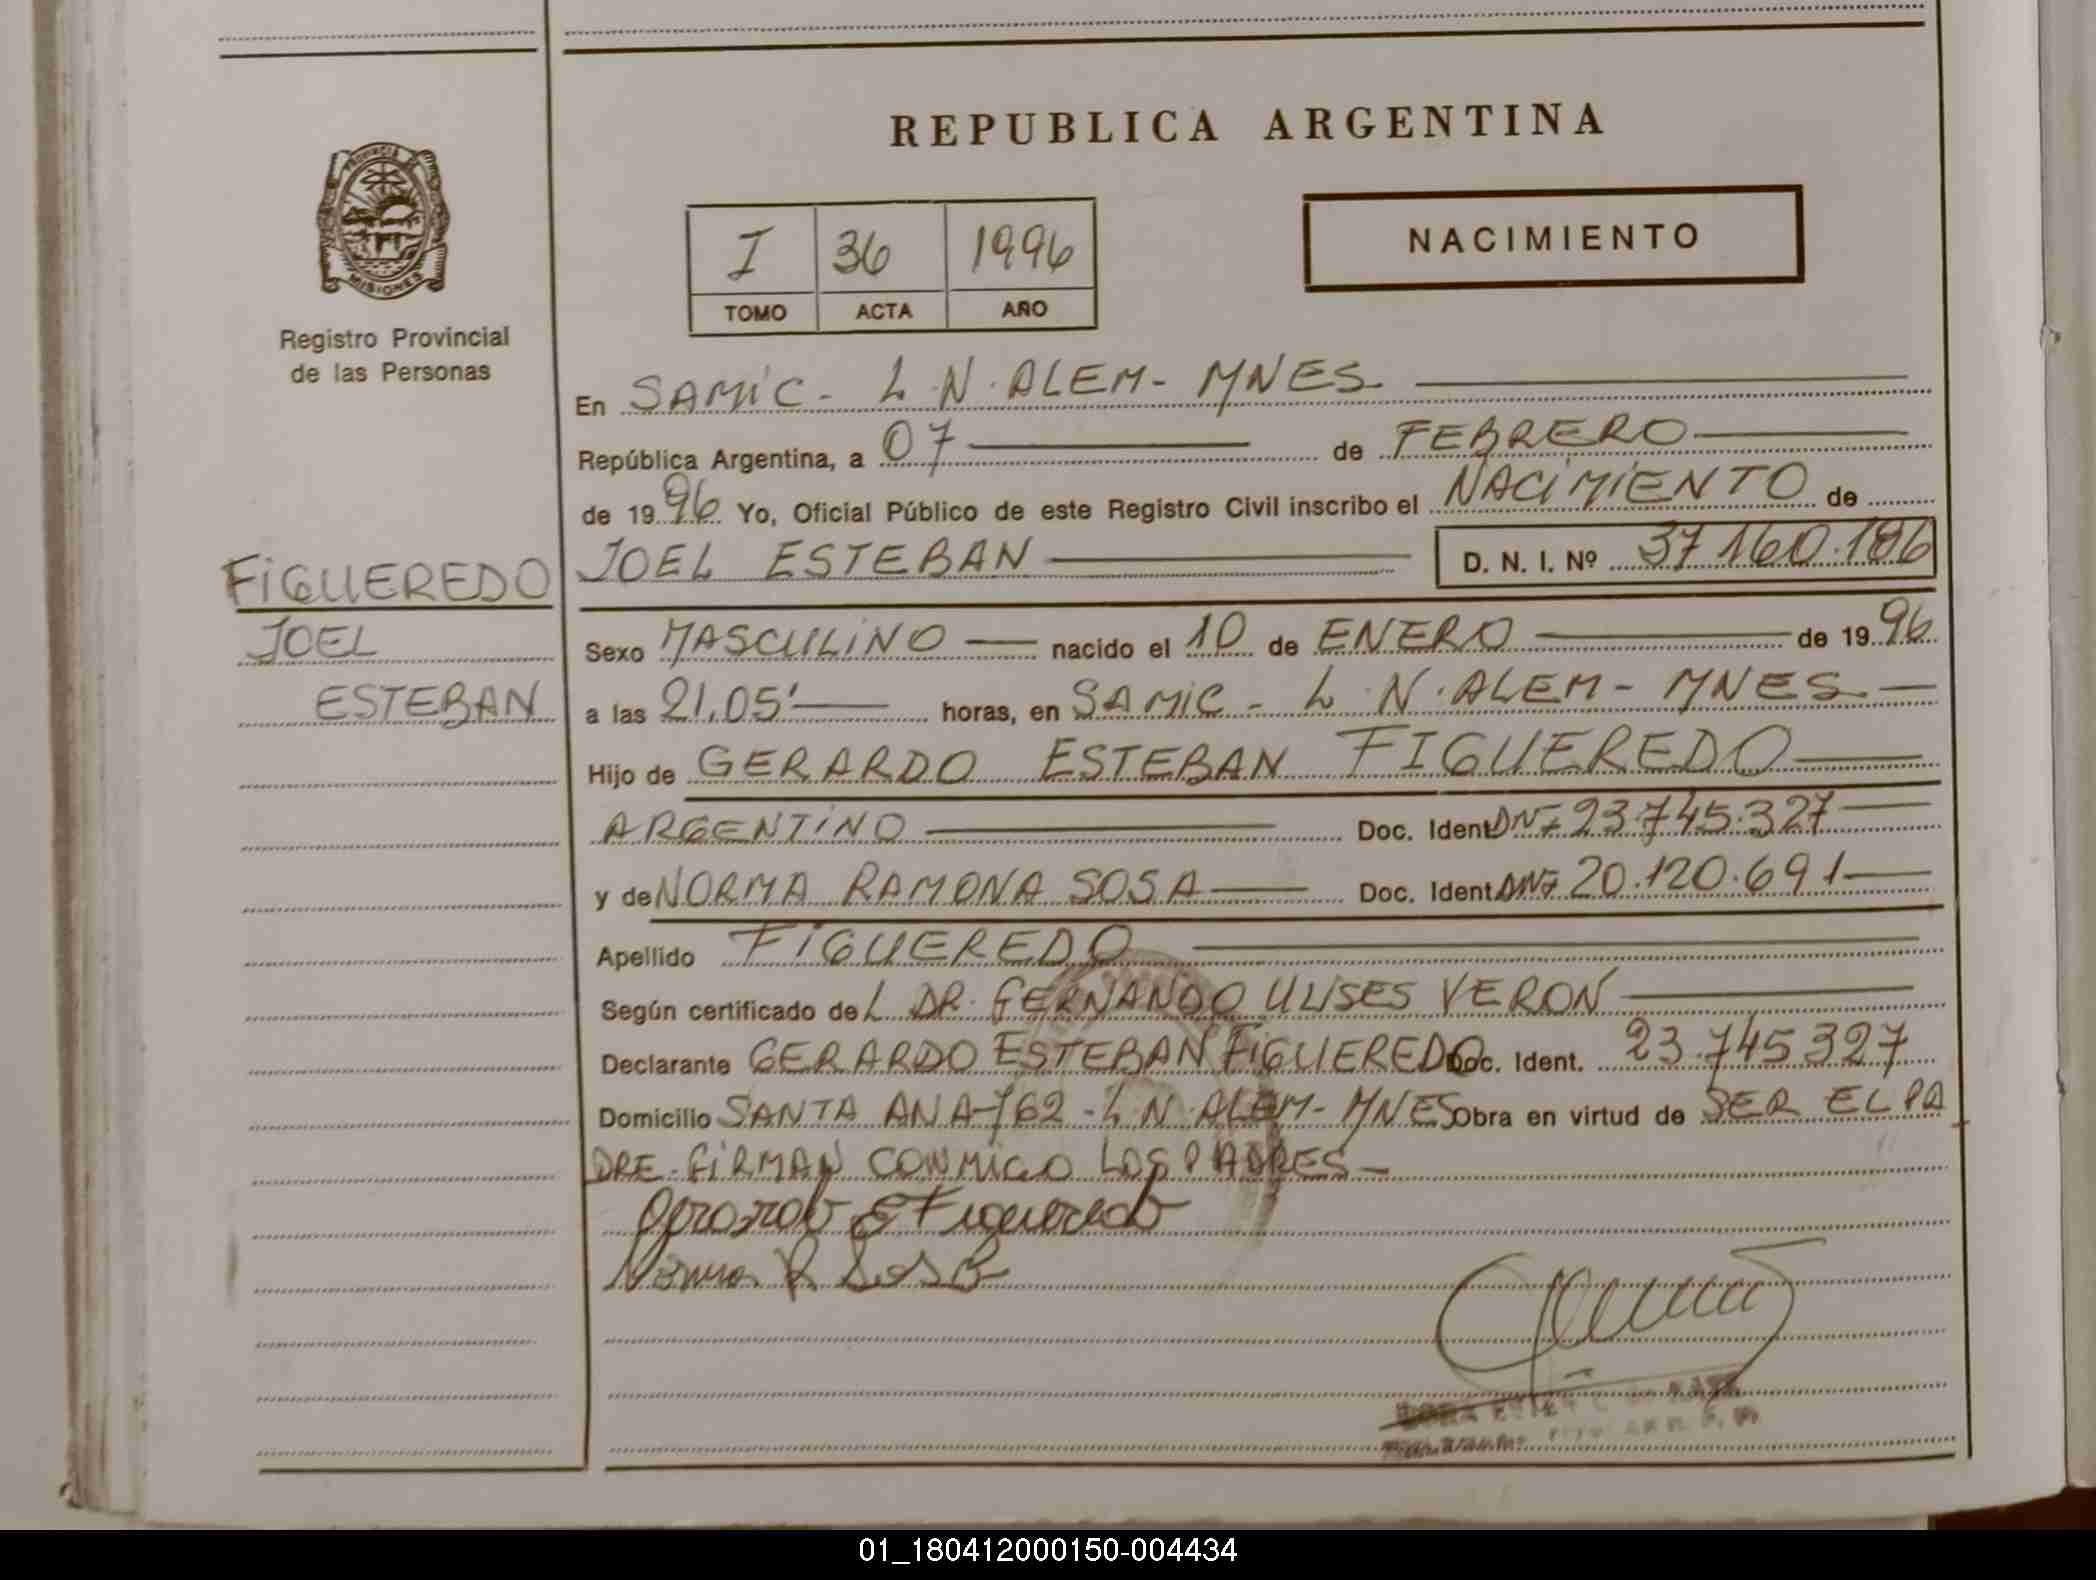 REPUBLICA ARGENTINA
PROVINCIA DE
MISIONES
Registro Provincial
de las Personas
I 36 1996
TOMO ACTA AÑO
NACIMIENTO
En SAMIC - L. N. ALEM - MNES
República Argentina, a 07 de FEBRERO
de 1996 Yo, Oficial Público de este Registro Civil inscribo el NACIMIENTO de
JOEL ESTEBAN D. N. I. Nº 37160.186
FIGUEREDO
JOEL
ESTEBAN
Sexo MASCULINO nacido el 10 de ENERO de 1996
a las 21,05' horas, en SAMIC - L. N. ALEM - MNES
Hijo de GERARDO ESTEBAN FIGUEREDO
ARGENTINO Doc. Ident. DNI 23.745.327
y de NORMA RAMONA SOSA Doc. Ident. DNI 20.120.691
Apellido FIGUEREDO
Según certificado del DR. FERNANDO ULISES VERON
Declarante GERARDO ESTEBAN FIGUEREDO Doc. Ident. 23.745327
Domicilio SANTA ANA 762 - L. N. ALEM - MNES Obra en virtud de SER EL PA
DRE - FIRMAN CONMIGO LOS PADRES -
Gerardo E Figueredo
Norma R Sosa
01_180412000150-004434